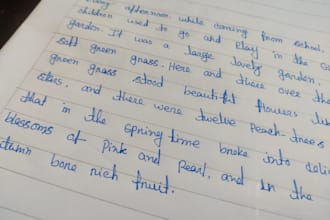 every afternoon, while coming from school,
children used to go and play in the
garden. It was a large lovely garden,
soft green grass. Here and there over the
green grass stood beautiful flowers
stars, and there were twelve Peach-trees
that in the spring time broke into
blossoms of Pink and Pearl, and in the
bore rich fruit.